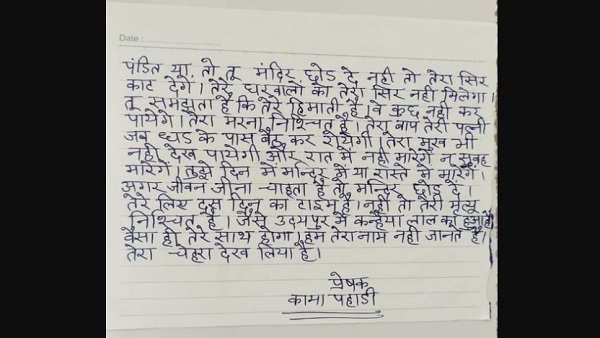 Date :
पंडित या तो तू मंदिर छोड दे नही तो तेरा सिर
काट देंगे। तेरे घरवालो को तेरा सिर नही मिलेगा।
तू समझता है कि तेरे हिमाती है वे कुछ नही कर
पायेगे। तेरा मरना निश्चित है। तेरा बाप तेरी पत्नी
जब धड के पास बैठ कर रोयेगी। तेरा मुख भी
नही देख पायेगी और रात में नही मारेंगें न सुबह
मारेंगें। तुझे दिन में मन्दिर में या रास्ते में मारेंगे।
अगर जीवन जीना चाहता है तो मन्दिर छोड दे।
तेरे लिए दस दिन का टाइम है। नही तो तेरी मृत्यू
निश्चित है। जैसे उदयपुर में कन्हैया लाल का हुआ है
वैसा ही तेरे साथ होगा। हम तेरा नाम नही जानते है।
तेरा चेहरा देख लिया है।
प्रेषक
कामा पहाडी